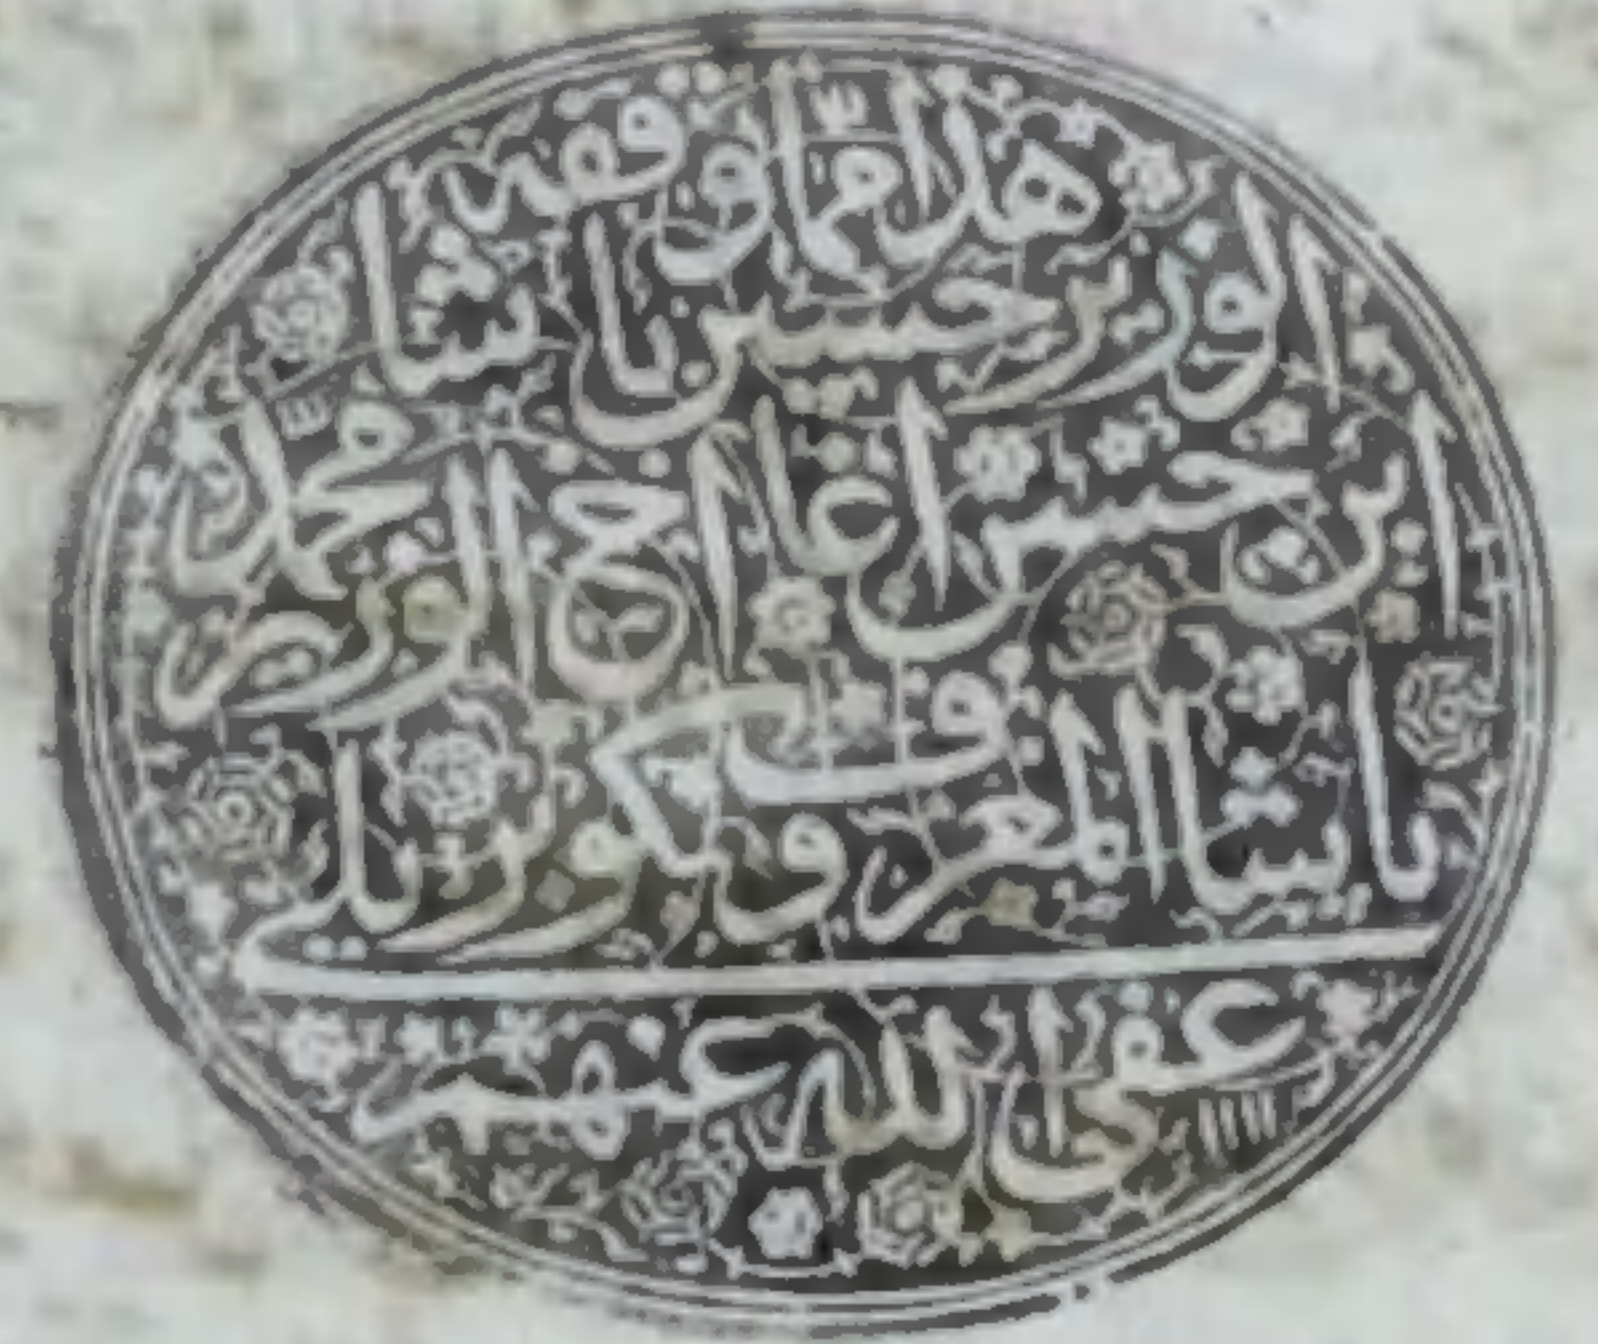 هذا مما وقفه
الوزير حسين باشا
ابن حسن اغا اخ الوزير محمد
باشا المعروف بكوپريلى
عفى الله عنهم ١١١١